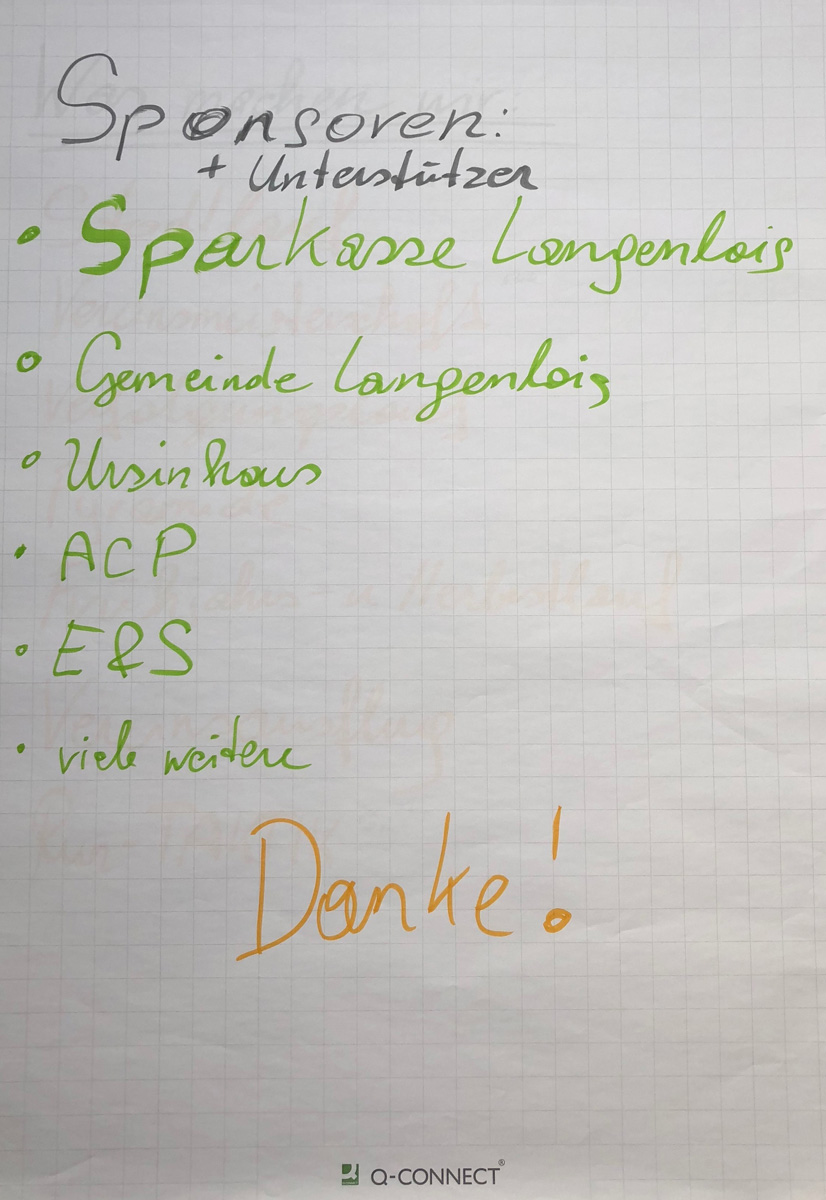 Sponsoren:
+ Unterstützer
• Sparkasse Langenlois
• Gemeinde Langenlois
• Ursinhaus
• ACP
• E&S
• viele weitere
Danke!
Q-CONNECT®